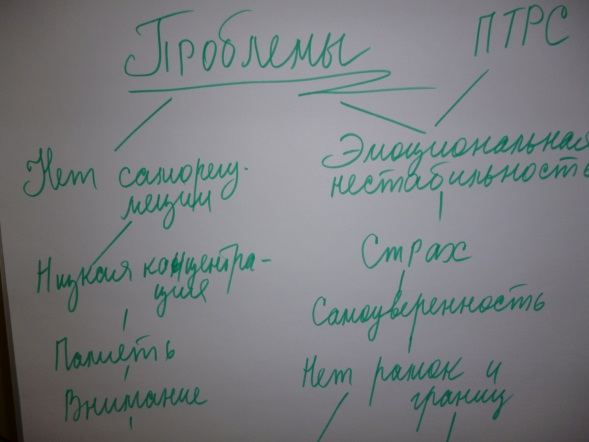 Проблемы
ПТРС
Нет саморегу-
ляции
Низкая концентра-
ция
Память
Внимание
Эмоциональная
нестабильность
Страх
Самоуверенность
Нет рамок и
границ